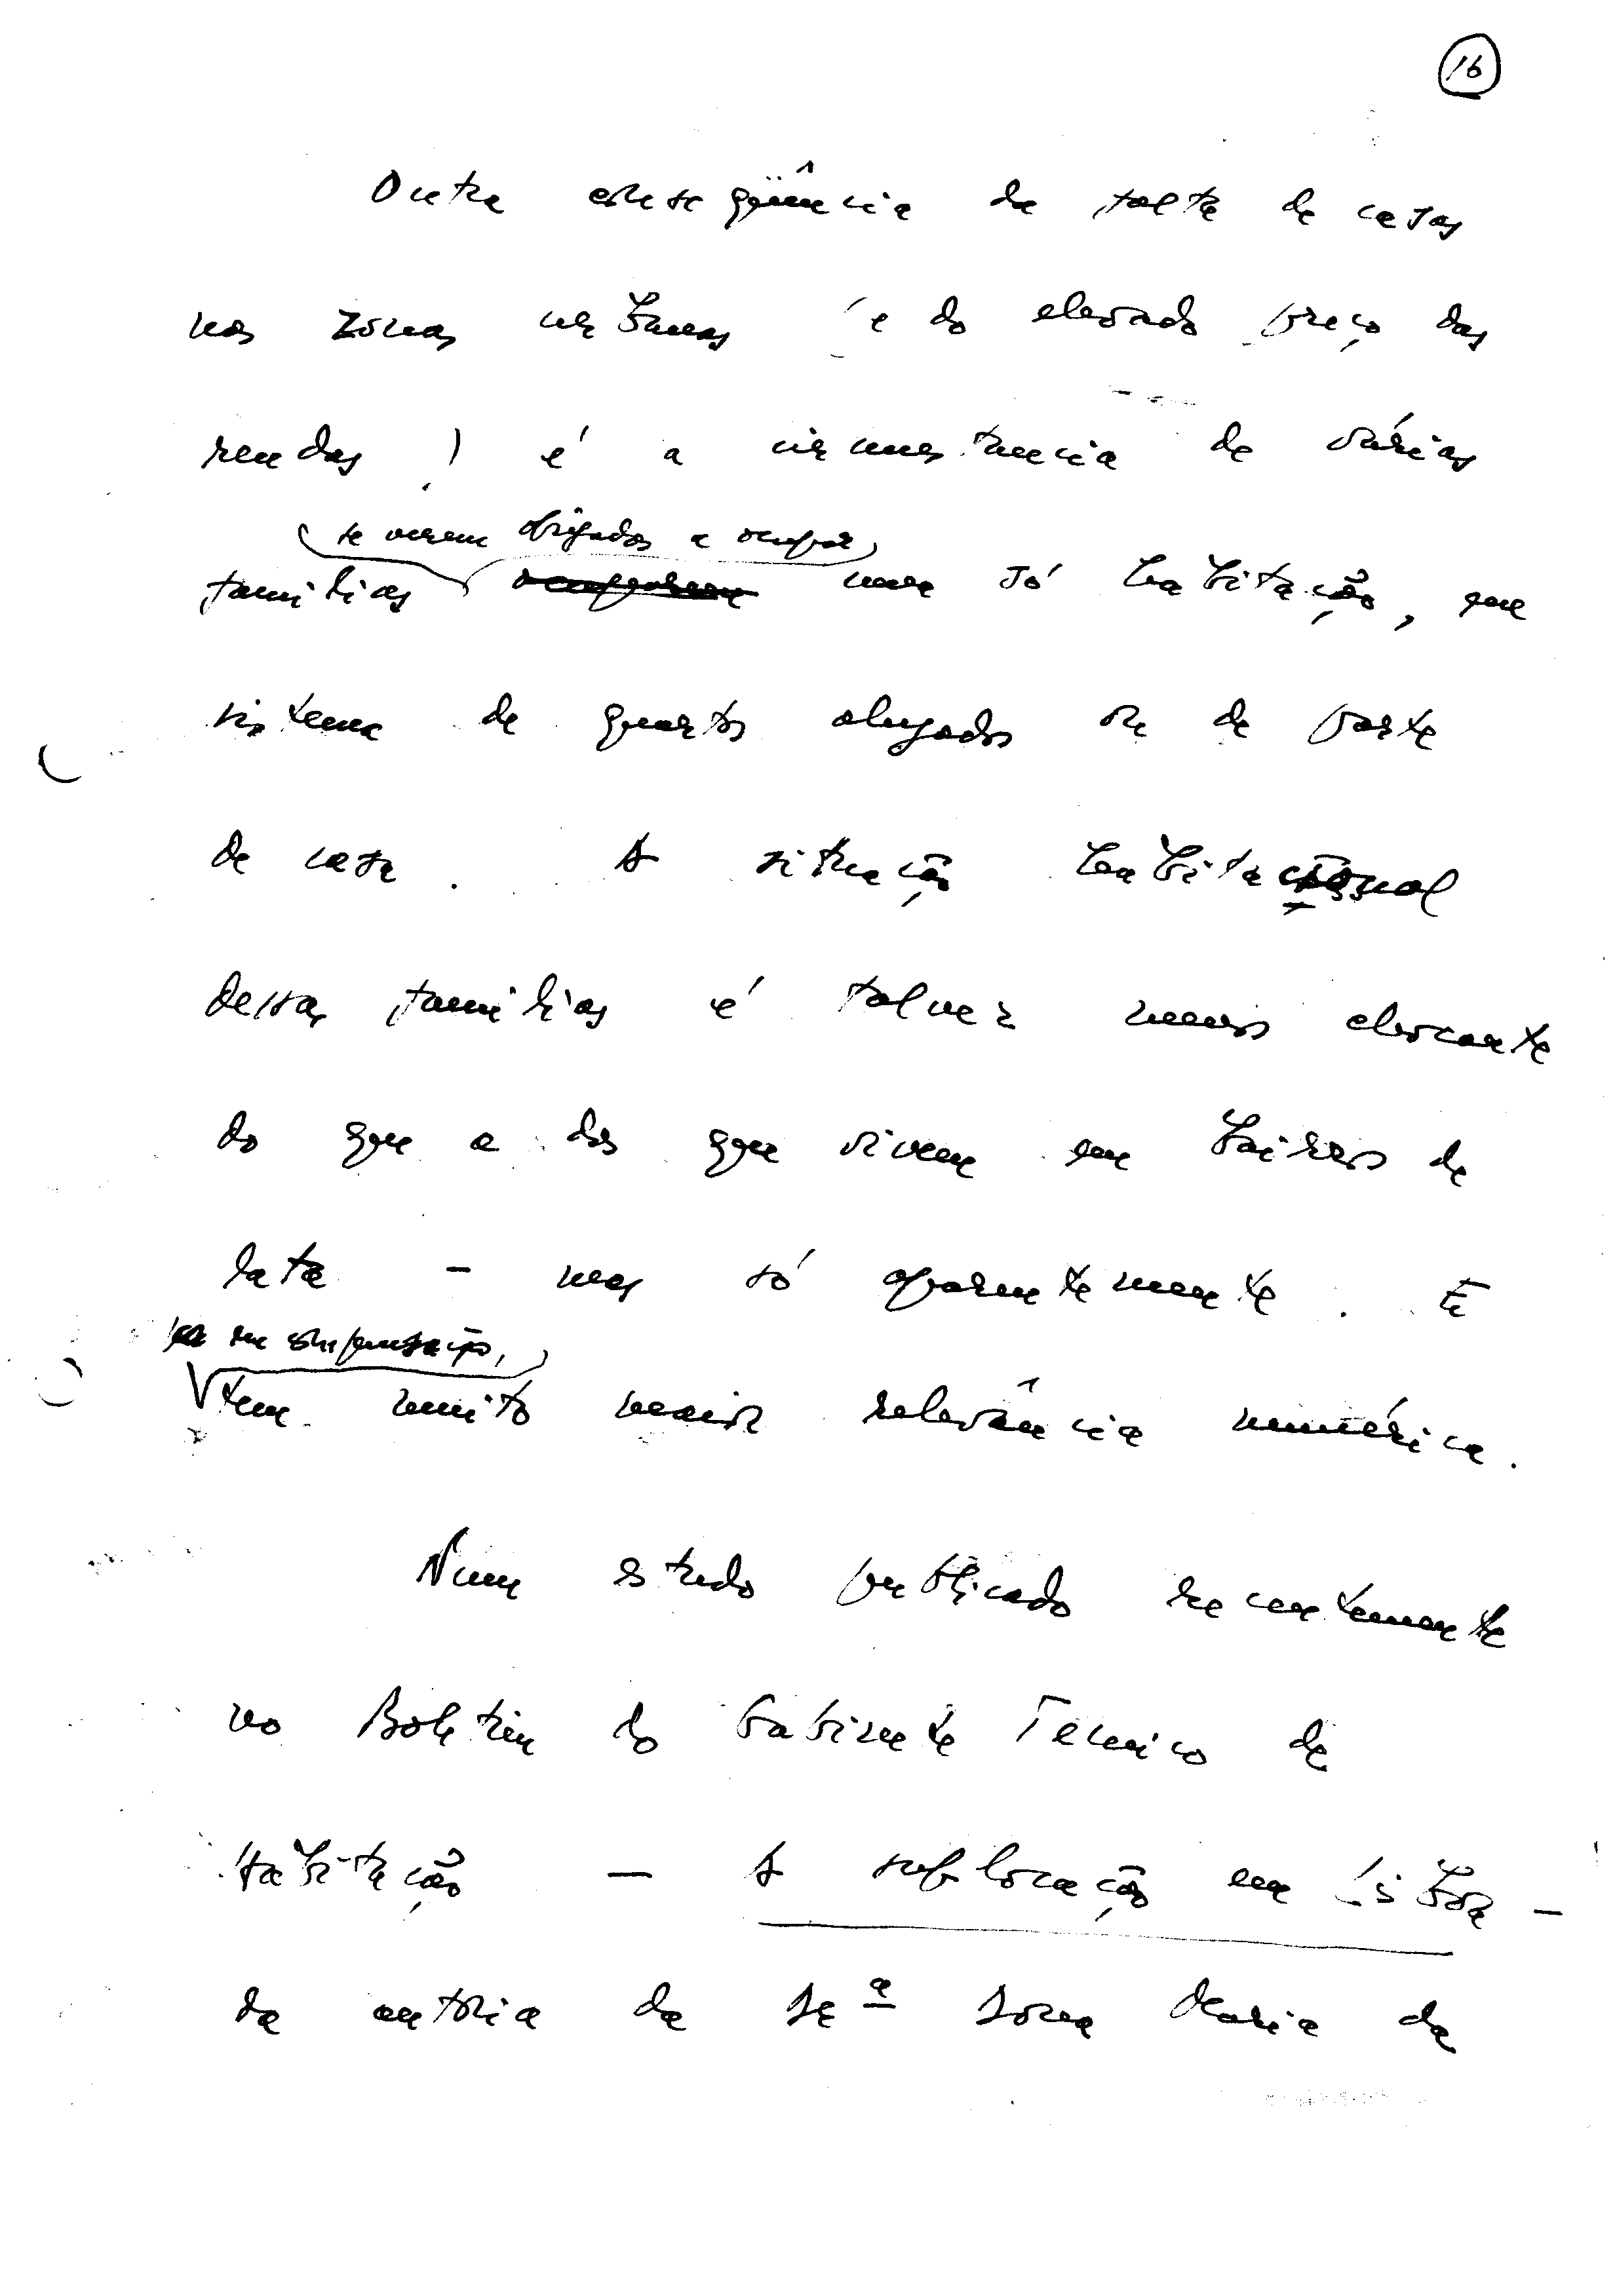 16
Outra conseqüência da falta de casas
nas zonas urbanas e do elevado preço das
rendas, é a circunstancia de várias
se verem obrigadas a ocupar
familias ocuparem uma só habitação, em
sistema de quartos alugados ou de parte
de casa. A situação habitacional
dessas familias é talvez menos chocante
do que a dos que vivem em bairros de
lata - mas só aparentemente. E
em compensação,
tem muito maior relevância numérica.
Num estudo publicado recentemente
no Boletim do Gabinete Tecnico de
Habitação — A sublocação em Lisboa —
da autoria da Sr.ª Dona Maria da